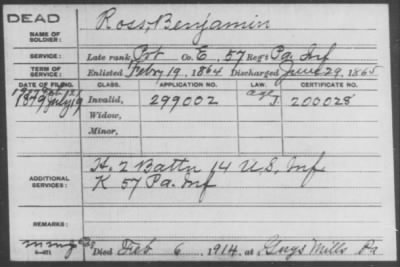 DEAD
NAME OF SOLDIER: Ross, Benjamin
SERVICE: Late rank Pvt Co. E, 57 Reg't Pa Inf
TERM OF SERVICE: Enlisted Febry 19, 1864 Discharged June 29, 1865
DATE OF FILING. CLASS. APPLICATION NO. LAW. CERTIFICATE NO.
1879 July 19 Invalid, 299002 J 200028
Widow,
Minor,
ADDITIONAL SERVICES: H. 2 Battn 14 U.S. Inf
K 57 Pa. Inf
REMARKS:
Died Feb 6, 1914, at Guys Mills Pa